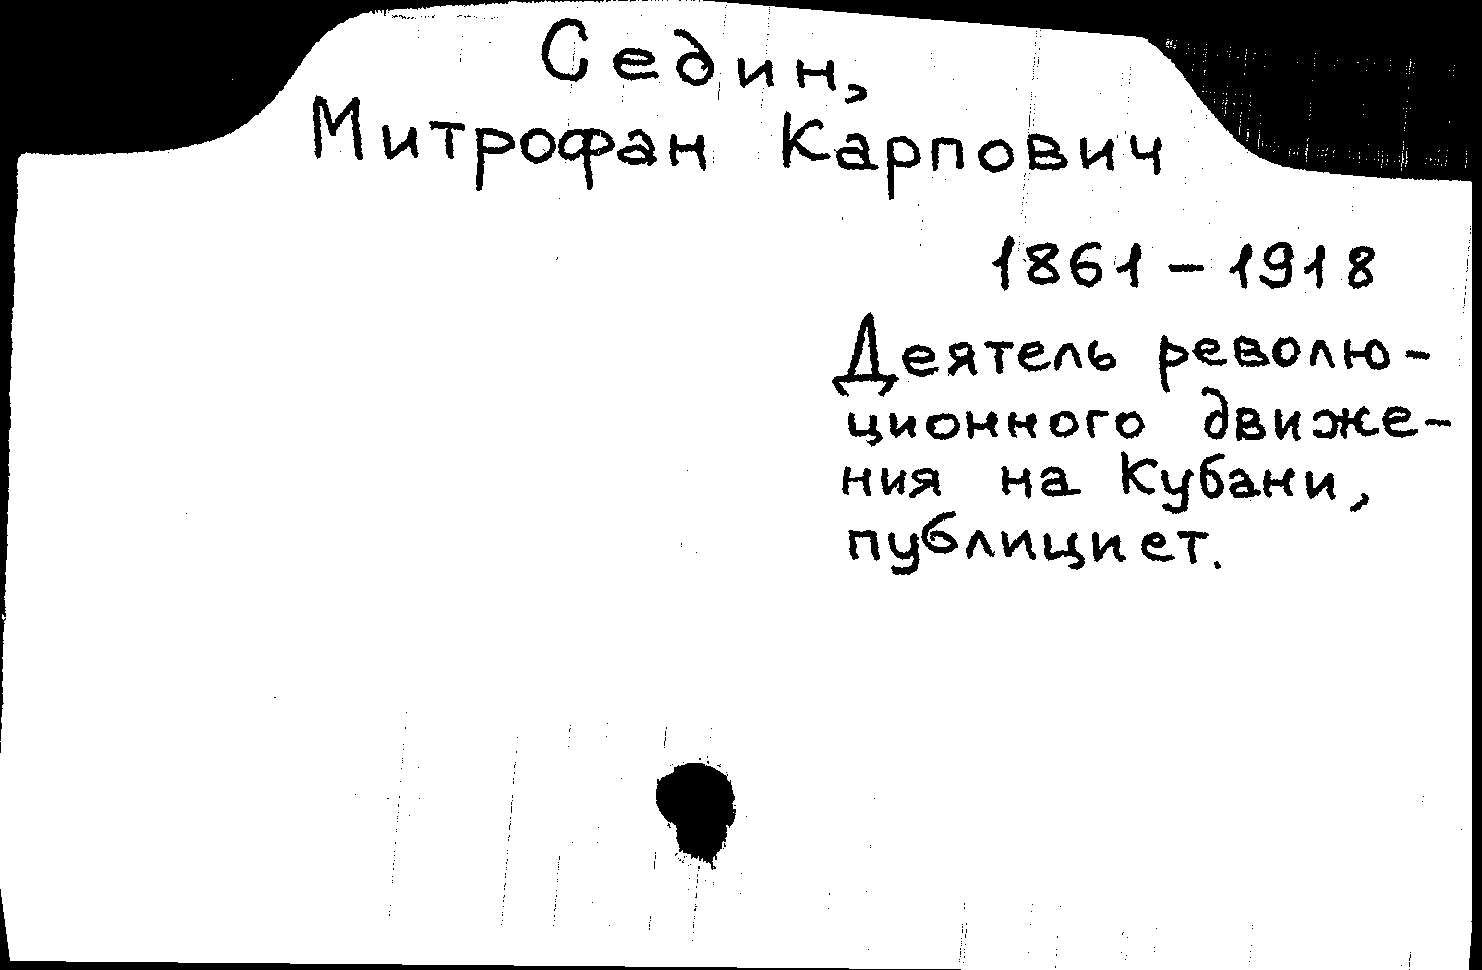 Седин,
Митрофан Карпович
1861-1918
Деятель револю-
ционного движе-
ния на Кубани,
публицист.